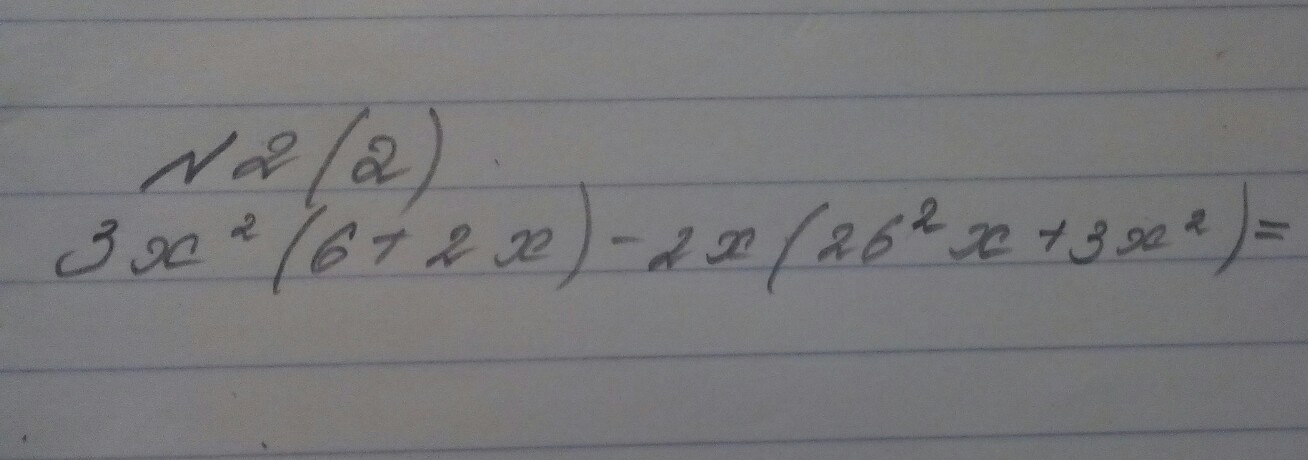 N2(2)
3x²(6+2x)-2x(26²x+3x²)=